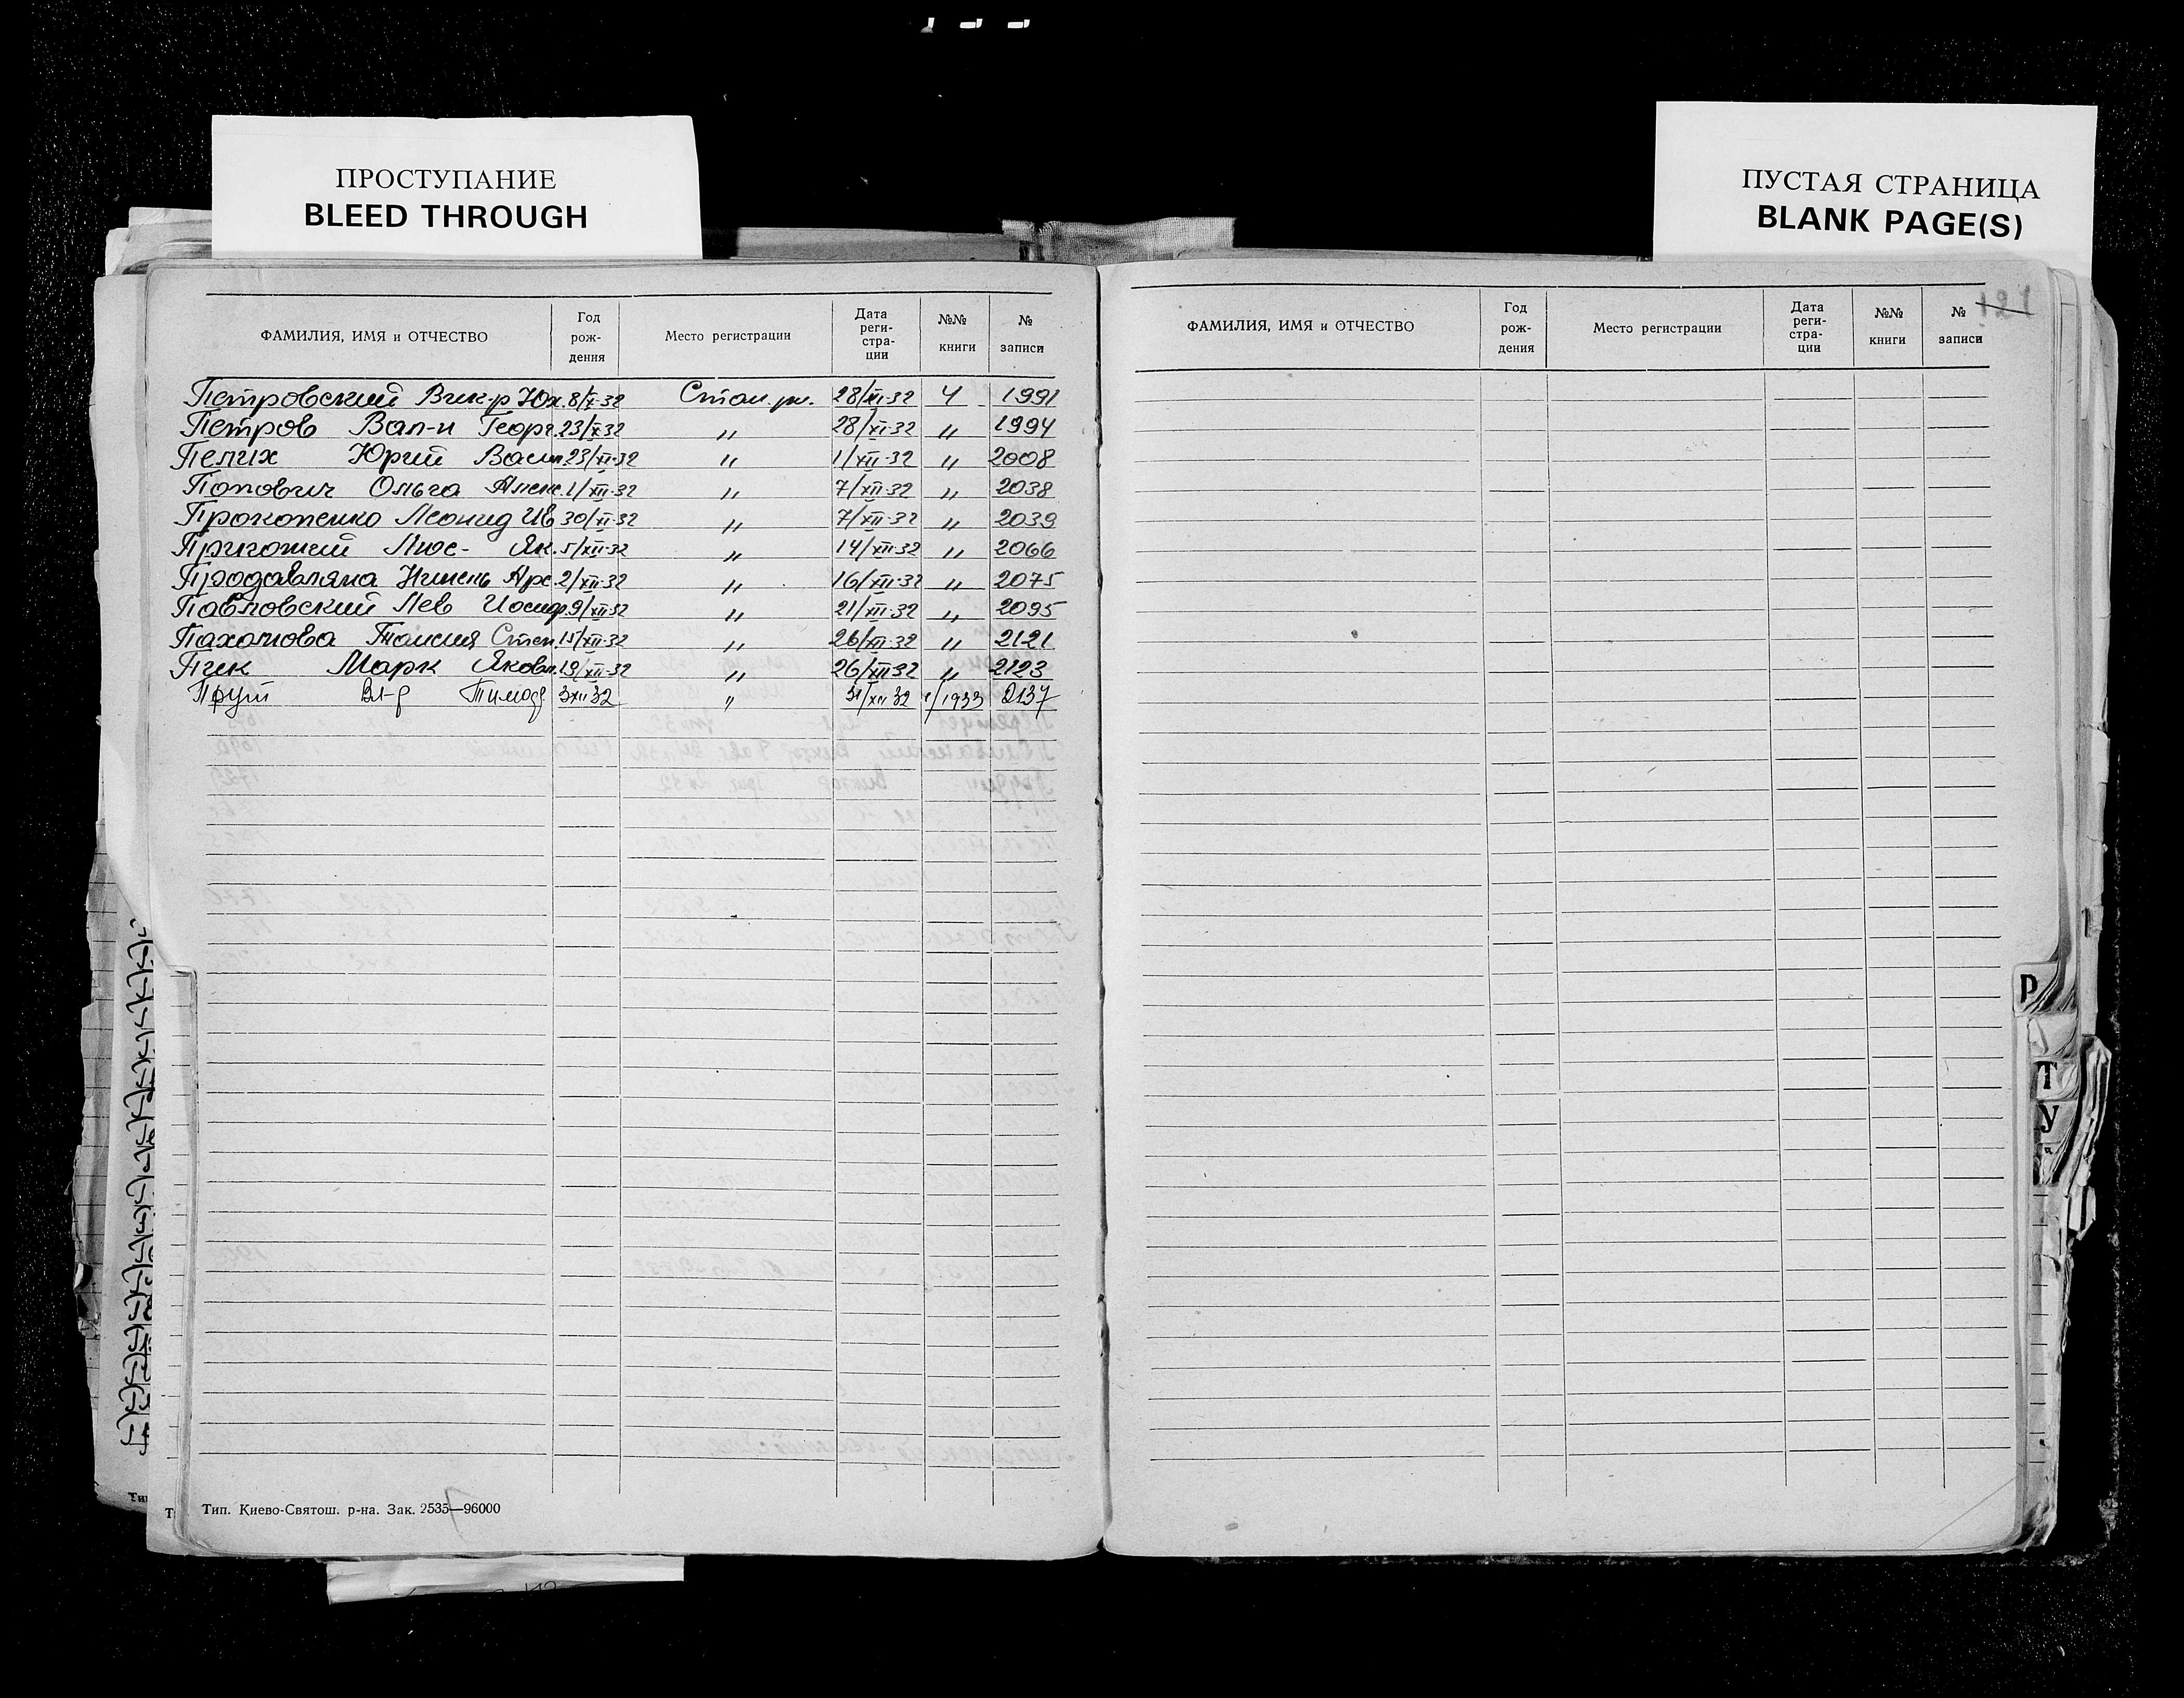 ПРОСТУПАНИЕ
BLEED THROUGH
ПУСТАЯ СТРАНИЦА
BLANK PAGE(S)
ФАМИЛИЯ, ИМЯ и ОТЧЕСТВО Год рож- дения Место регистрации Дата реги- стра- ции №№ книги № записи
Петровский Вик-р Юх. 8/X-32 Стал. рн. 28/XI-32 4 1991
Петров Вал-н Георг. 23/X32 " 28/XI-32 " 1994
Пелих Юрий Васил. 23/XI-32 " 1/XII-32 " 2008
Попович Ольга Алекс. 1/XII-32 " 7/XII-32 " 2038
Прокопенко Леонид Ив 30/XI-32 " 7/XII-32 " 2039
Пригожий Як. 5/XII-32 " 14/XII-32 " 2066
Арс. 2/XII-32 " 16/XII-32 " 2075
Павловский Лев Иосиф. 9/XII-32 " 21/XII-32 " 2095
Пахомова Таисия Степ. 15/XII-32 " 26/XII-32 " 2121
Пик Марк Яковл. 19/XII-32 " 26/XII-32 " 2123
Прут Вл-р Тимоф 3XII32 " 31/XII 32 1/1933 2137
Тип. Киево-Святош. р-на. Зак. 2535—96000
121
ФАМИЛИЯ, ИМЯ и ОТЧЕСТВО Год рож- дения Место регистрации Дата реги- стра- ции №№ книги № записи
Р
Т
У